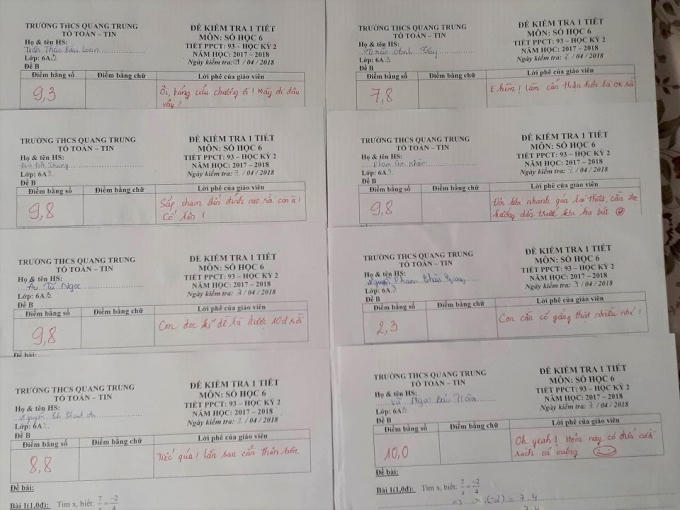 TRƯỜNG THCS QUANG TRUNG
TỔ TOÁN – TIN
Họ & tên HS:
Lớp: 6A
Đề B
ĐỀ KIỂM TRA 1 TIẾT
MÔN: SỐ HỌC 6
TIẾT PPCT: 93 – HỌC KỲ 2
NĂM HỌC: 2017 – 2018
Ngày kiểm tra: /04 / 2018
Điểm bằng số Điểm bằng chữ Lời phê của giáo viên
9,3
Ôi, bảng cửu chương ơi! Mày đi đâu
vậy!
TRƯỜNG THCS QUANG TRUNG
TỔ TOÁN – TIN
Họ & tên HS:
Lớp: 6A
Đề B
ĐỀ KIỂM TRA 1 TIẾT
MÔN: SỐ HỌC 6
TIẾT PPCT: 93 – HỌC KỲ 2
NĂM HỌC: 2017 – 2018
Ngày kiểm tra: / 04 / 2018
Điểm bằng số Điểm bằng chữ Lời phê của giáo viên
7,8
E hèm! Cẩn thận hơn là ok
TRƯỜNG THCS QUANG TRUNG
TỔ TOÁN – TIN
Họ & tên HS:
Lớp: 6A
Đề B
ĐỀ KIỂM TRA 1 TIẾT
MÔN: SỐ HỌC 6
TIẾT PPCT: 93 – HỌC KỲ 2
NĂM HỌC: 2017 – 2018
Ngày kiểm tra: / 04 / 2018
Điểm bằng số Điểm bằng chữ Lời phê của giáo viên
9,8
Sắp chạm đến đỉnh rồi con ạ!
Cố lên!
TRƯỜNG THCS QUANG TRUNG
TỔ TOÁN – TIN
Họ & tên HS:
Lớp: 6A
Đề B
ĐỀ KIỂM TRA 1 TIẾT
MÔN: SỐ HỌC 6
TIẾT PPCT: 93 – HỌC KỲ 2
NĂM HỌC: 2017 – 2018
Ngày kiểm tra: / 04 / 2018
Điểm bằng số Điểm bằng chữ Lời phê của giáo viên
9,8
Đôi khi nhanh quá
TRƯỜNG THCS QUANG TRUNG
TỔ TOÁN – TIN
Họ & tên HS:
Lớp: 6A
Đề B
ĐỀ KIỂM TRA 1 TIẾT
MÔN: SỐ HỌC 6
TIẾT PPCT: 93 – HỌC KỲ 2
NĂM HỌC: 2017 – 2018
Ngày kiểm tra: / 04 / 2018
Điểm bằng số Điểm bằng chữ Lời phê của giáo viên
9,8
Con đọc kĩ đề là được 10đ rồi
Đề bài:
TRƯỜNG THCS QUANG TRUNG
TỔ TOÁN – TIN
Họ & tên HS:
Lớp: 6A
Đề B
ĐỀ KIỂM TRA 1 TIẾT
MÔN: SỐ HỌC 6
TIẾT PPCT: 93 – HỌC KỲ 2
NĂM HỌC: 2017 – 2018
Ngày kiểm tra: / 04 / 2018
Điểm bằng số Điểm bằng chữ Lời phê của giáo viên
2,3
Con cần cố gắng thật nhiều nhé!
TRƯỜNG THCS QUANG TRUNG
TỔ TOÁN – TIN
Họ & tên HS:
Lớp: 6A
Đề B
ĐỀ KIỂM TRA 1 TIẾT
MÔN: SỐ HỌC 6
TIẾT PPCT: 93 – HỌC KỲ 2
NĂM HỌC: 2017 – 2018
Ngày kiểm tra: / 04 / 2018
Điểm bằng số Điểm bằng chữ Lời phê của giáo viên
8,8
Tiếc quá! Lần sau cẩn thận hơn
Đề bài:
Bài 1(1,0đ): Tìm x, biết: 7/x = -2/4
TRƯỜNG THCS QUANG TRUNG
TỔ TOÁN – TIN
Họ & tên HS:
Lớp: 6A
Đề B
ĐỀ KIỂM TRA 1 TIẾT
MÔN: SỐ HỌC 6
TIẾT PPCT: 93 – HỌC KỲ 2
NĂM HỌC: 2017 – 2018
Ngày kiểm tra: / 04 / 2018
Điểm bằng số Điểm bằng chữ Lời phê của giáo viên
10,0
Oh yeah! Hôm nay có đứa cười
rách cả miệng
Đề bài:
Bài 1(1,0đ): Tìm x, biết: 7/x = -2/4
(-2) = 7.4
7.4